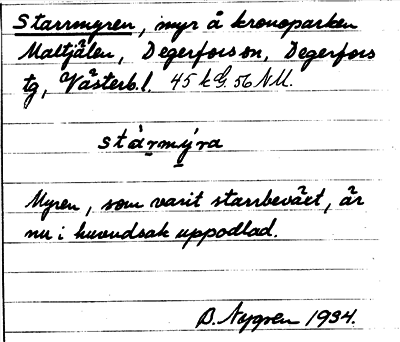 Starrmyren, myr å kronoparken
Maltjälen, Degerfors sn, Degerfors
tg, Västerb.l. 45 k G. 56 NM.
stàrmýra
Myren, som varit starrbeväxt, är
nu i huvudsak uppodlad.
B. Nygren 1934.